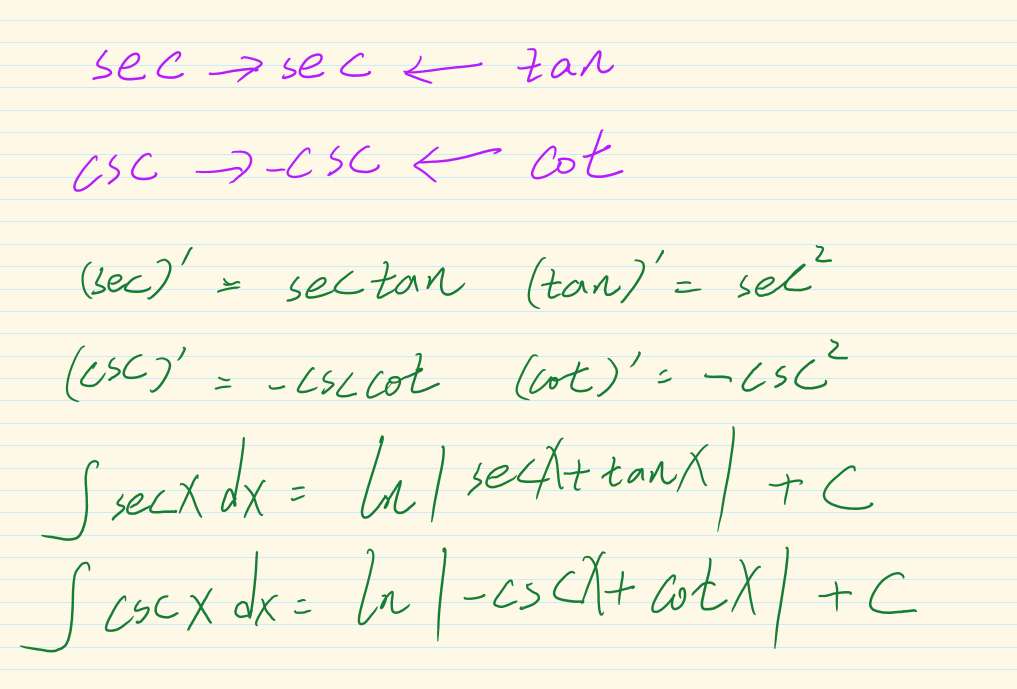 sec → sec ← tan
csc → -csc ← cot
(sec)' = sec tan (tan)' = sec²
(csc)' = -csc cot (cot)' = -csc²
∫ sec x dx = ln | sec x + tan x | + C
∫ csc x dx = ln | -csc x + cot x | + C